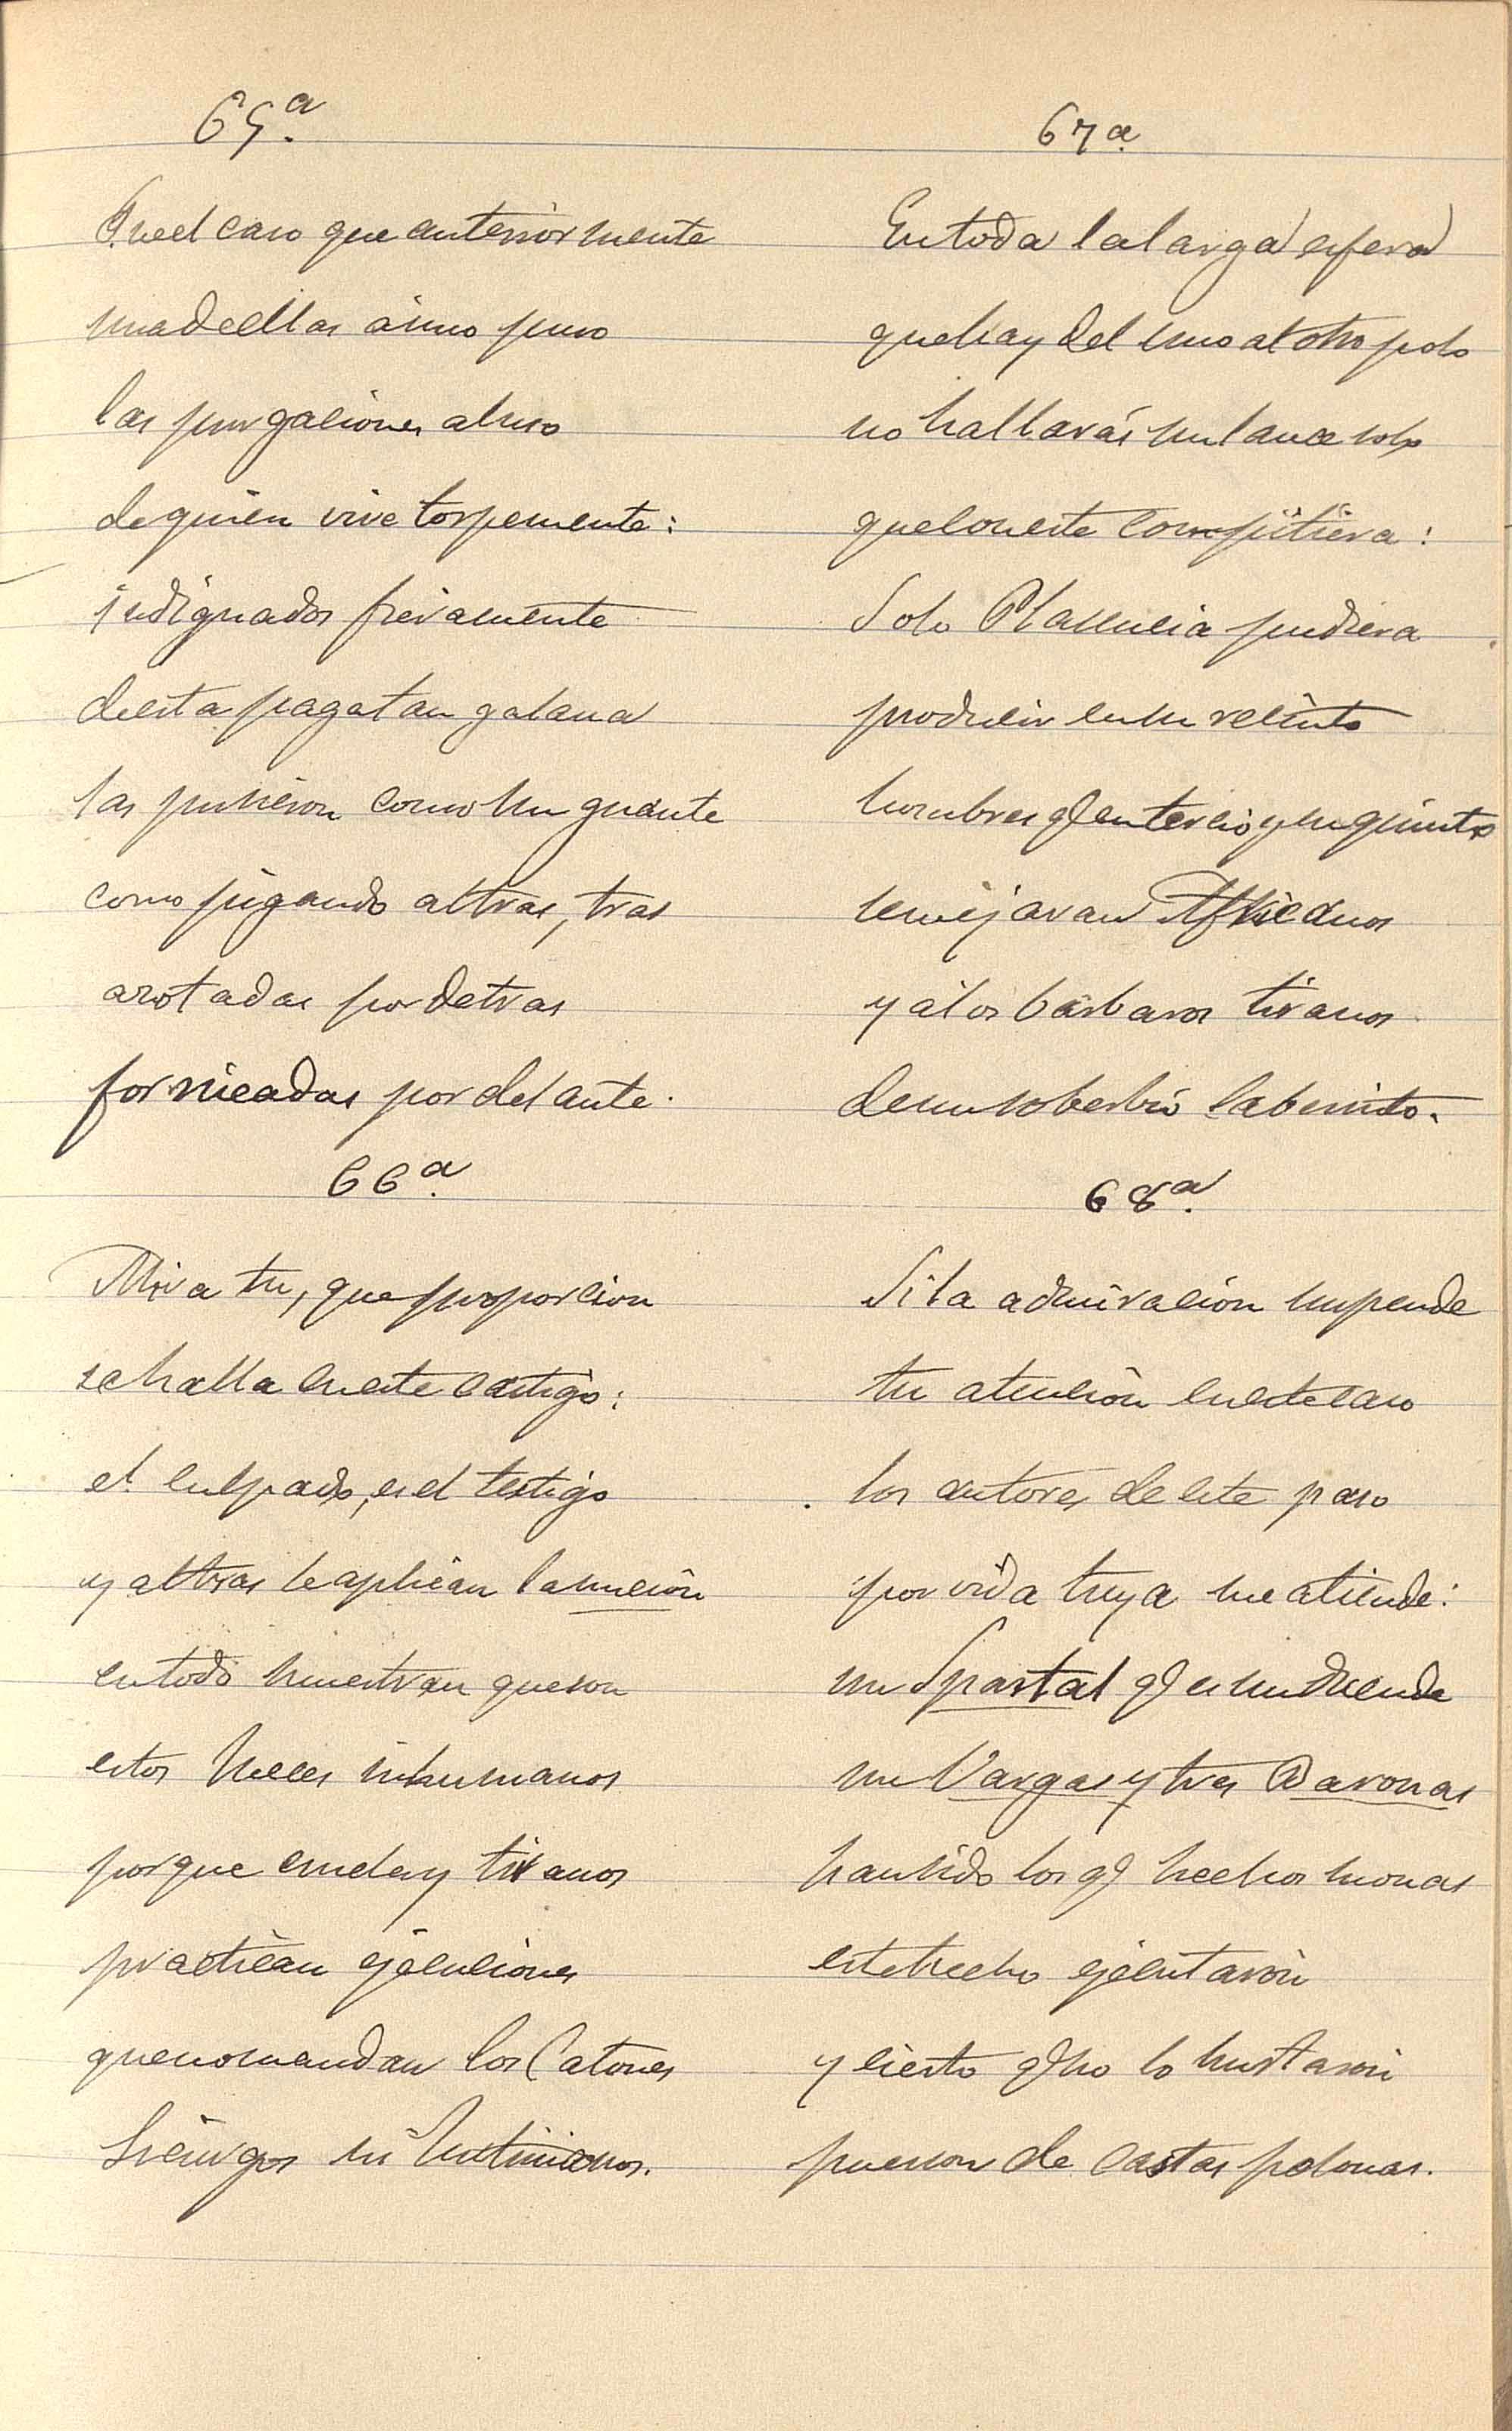 65ª
Fue el caso que anteriormente
una de ellas á uno puso
las purgaciones al uso
de quien vive torpemente:
indignados fieramente
de esta paga tan galana
las pusieron como un guante
como jugando al tras, tras
azotadas por detras
fornicadas por delante.
66ª
Mira tu, que proporcion
se halla en este castigo:
el culpado, es el testigo
y al tras le aplican la uncion
en todo muestran que son
estos Jueces inhumanos
porque crueles y tiranos
practican ejecuciones
que no mandan los Catones
Licurgos ni Justinianos.
67ª
En toda la larga esfera
que hay del uno al otro polo
no hallarás un lance solo
que con este compitiera:
Solo Plasencia pudiera
producir en su recinto
hombres q en tercio y en quinto
semejaran Africanos
y á los bárbaros tiranos
de un soberbio laberinto.
68ª
Si la admiracion suspende
tu atencion en este caso
los autores de este paso
por vida tuya me atiende:
un Spartal q es un duende
un Vargas y tres Baronas
han sido los q hechos monas
este hecho ejecutaron
y cierto q no lo hurtaron
pues son de castas polonas.